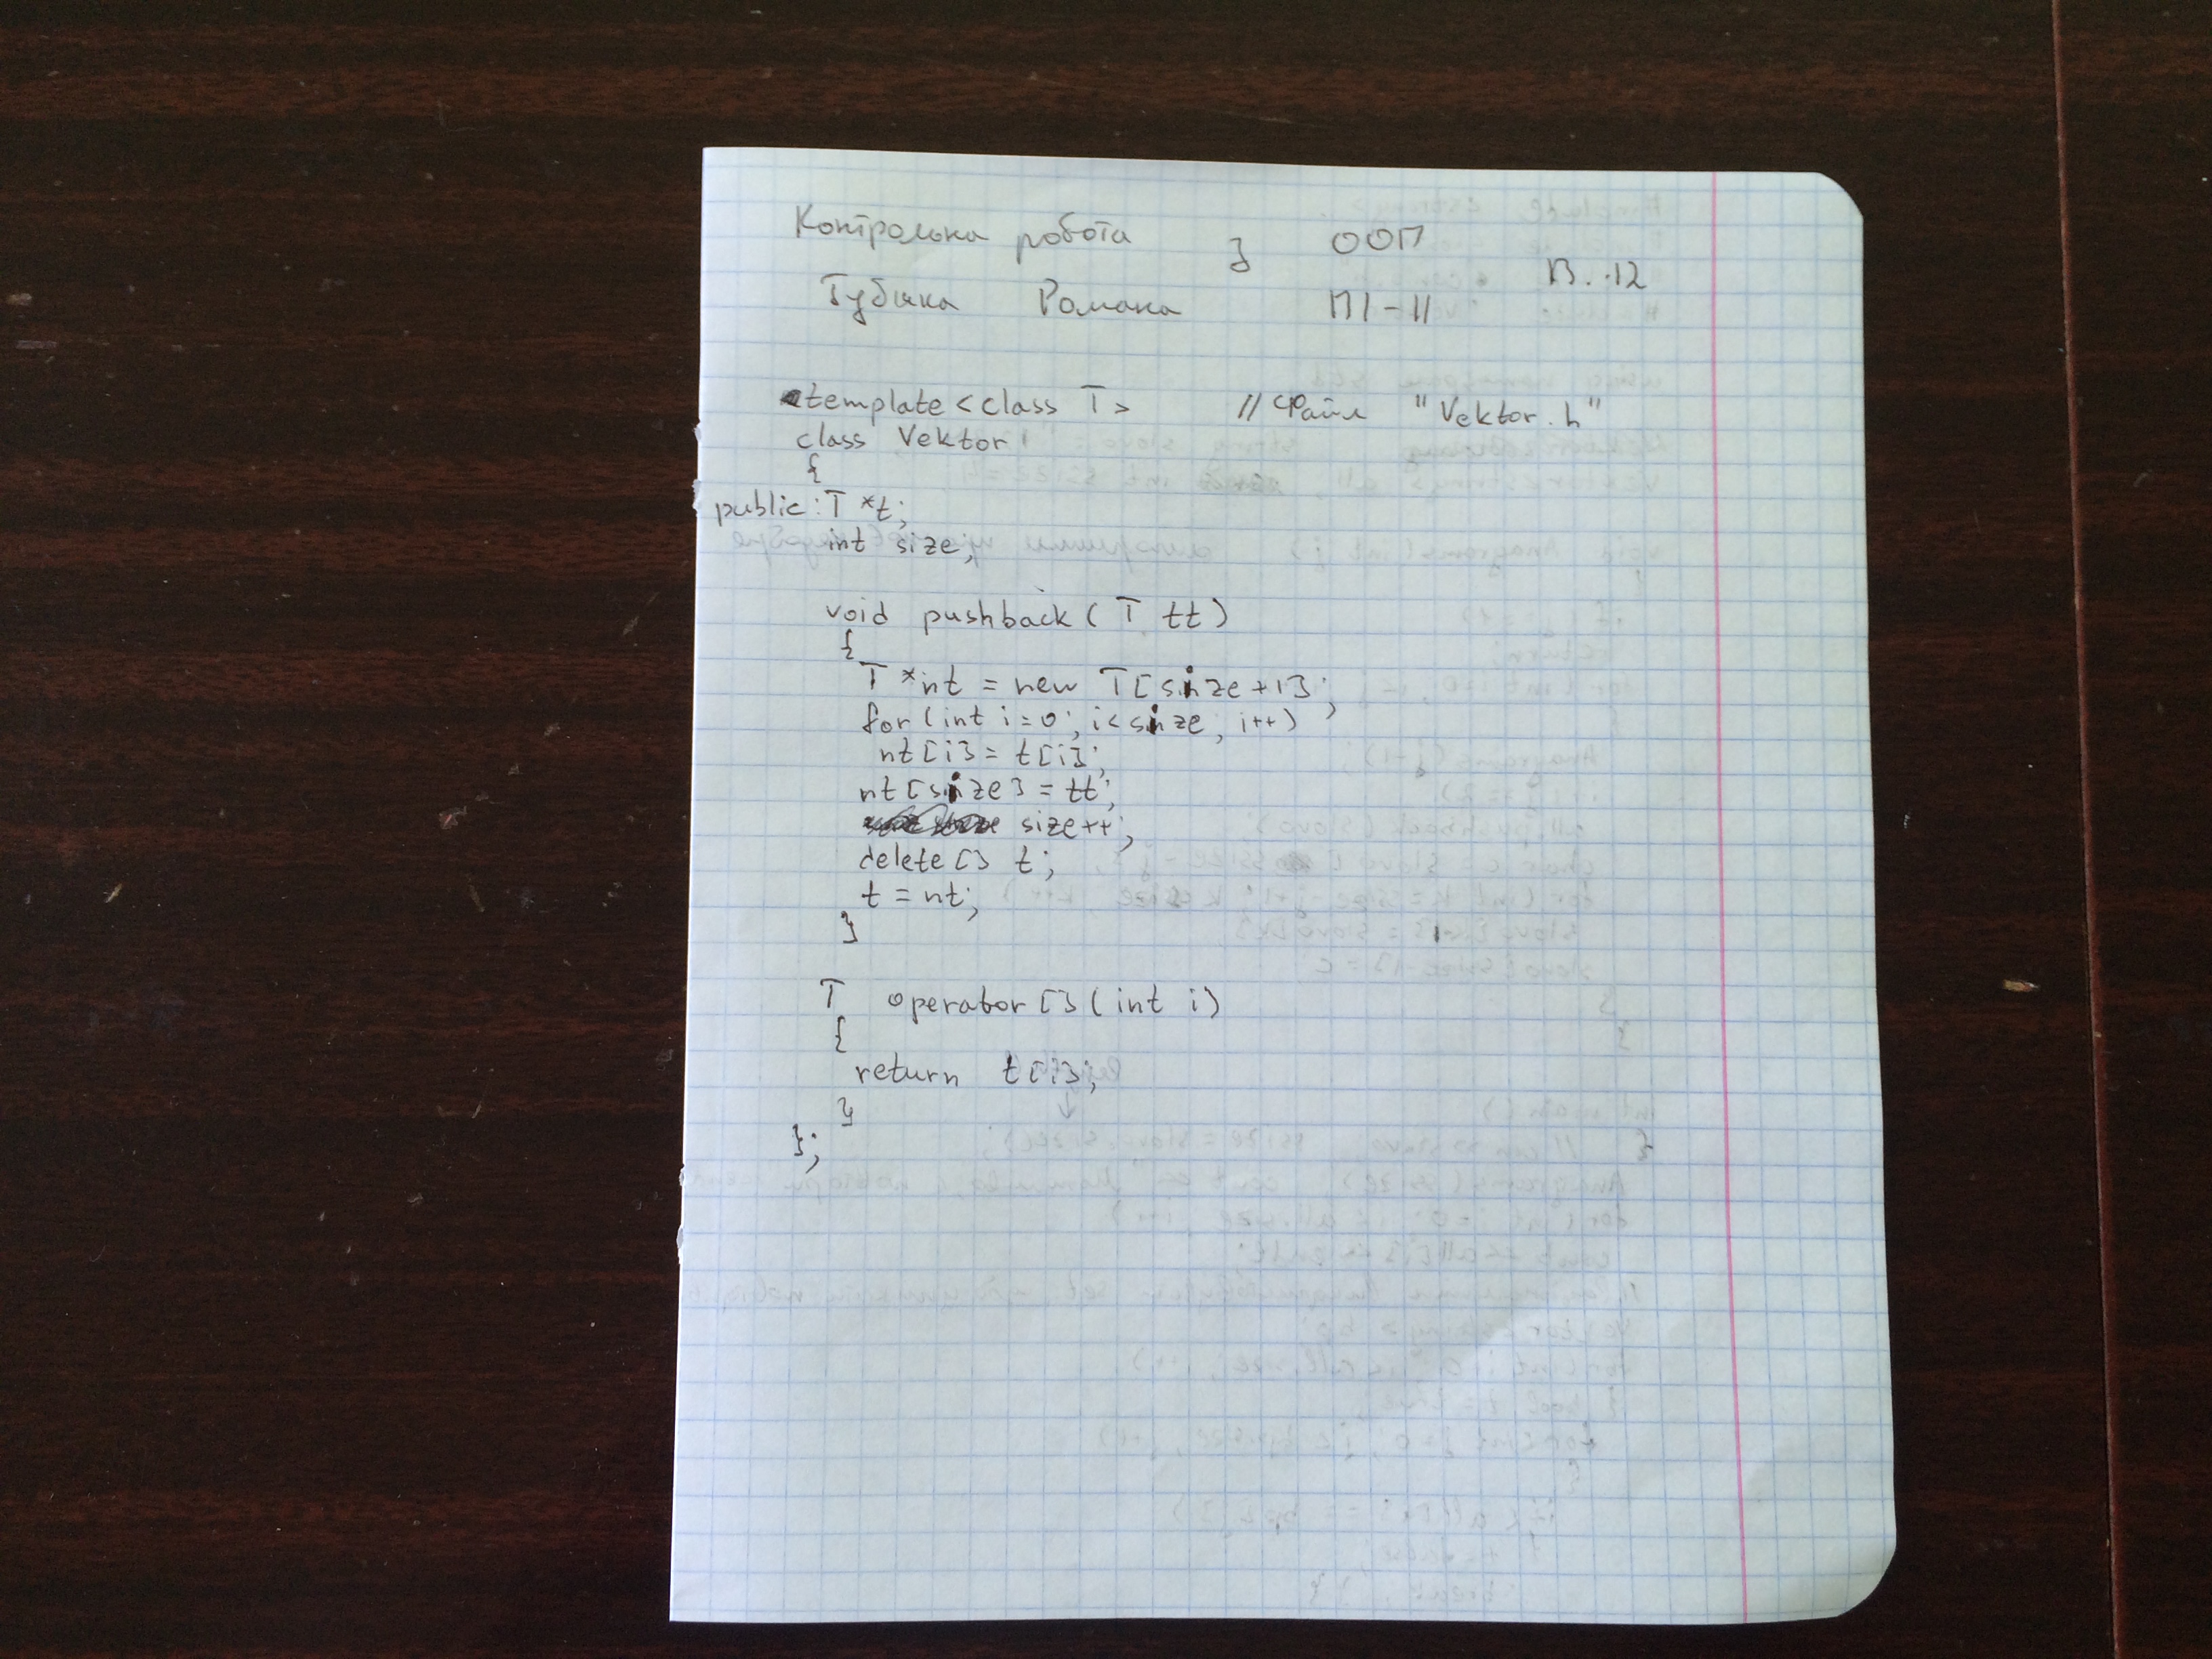 Контрольна робота з ООП В. 12
Губика Романа ПІ-11
template<class T> // файл "Vektor.h"
class Vektor
{
public: T *t;
int size;
void pushback (T tt)
{
T *nt = new T[size+1];
for (int i=0; i<size; i++)
nt[i] = t[i];
nt[size] = tt;
size++;
delete[] t;
t = nt;
}
T operator[](int i)
{
return t[i];
}
};